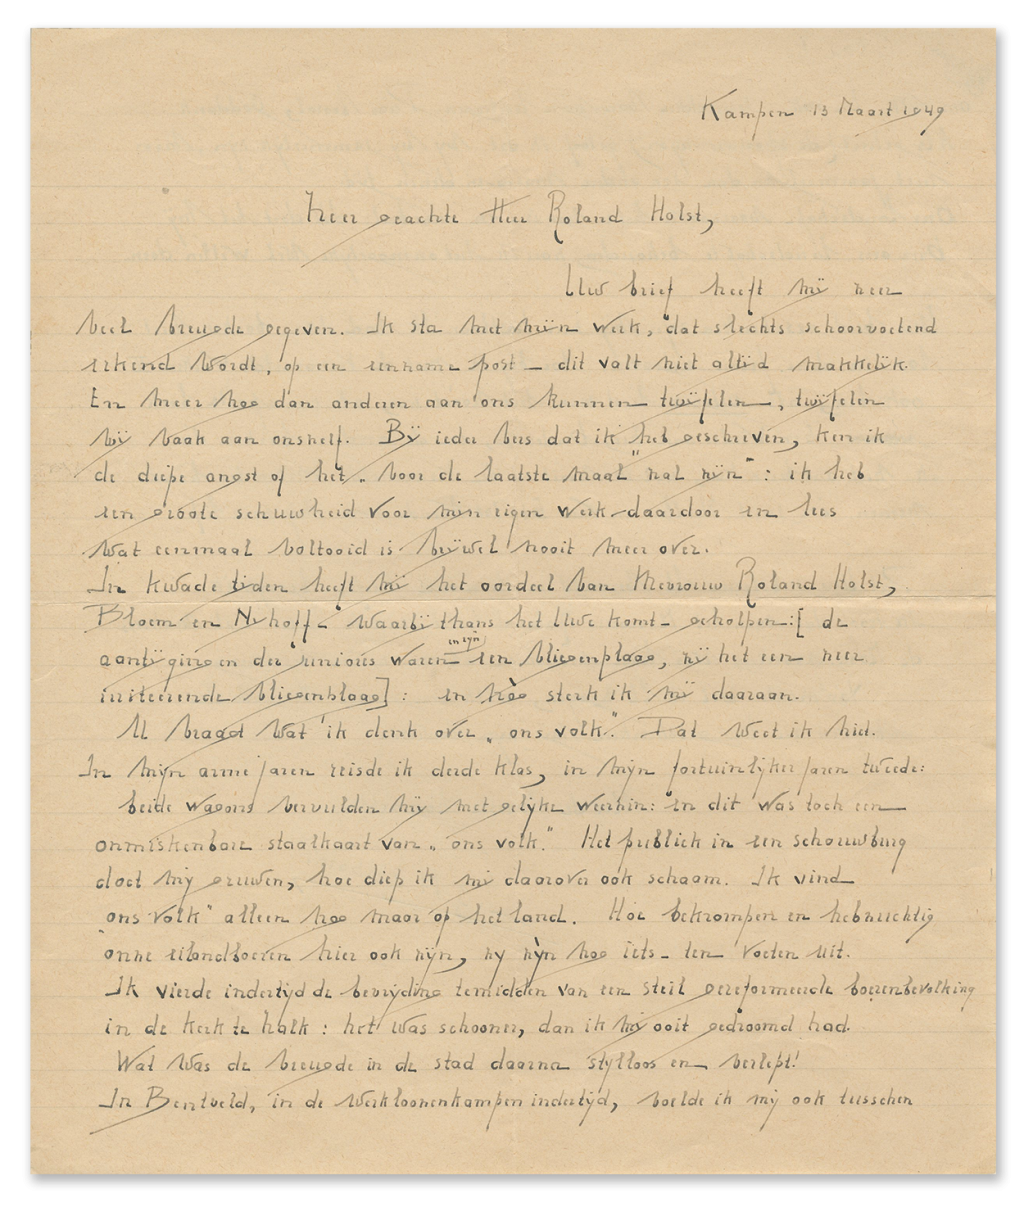 Kampen 13 Maart 1949
Zeer geachte Heer Roland Holst,
Uw brief heeft mij zeer
veel vreugde gegeven. Ik sta met mijn werk, dat slechts schoorvoetend
erkend wordt, op een eenzame post – dit valt niet altijd makkelijk.
En meer nog dan anderen aan ons kunnen twijfelen, twijfelen
wij vaak aan onszelf. Bij ieder vers dat ik heb geschreven, ken ik
de diepe angst of het „voor de laatste maal" zal zijn": ik heb
een groote schuwheid voor mijn eigen werk – daardoor en lees
wat eenmaal voltooid is bijwel nooit meer over.
In kwade tijden heeft mij het oordeel van Mevrouw Roland Holst,
Bloem en Nijhoff – waarbij thans het Uwe komt – geholpen: [de
aantijgingen der juniores waren en zijn een vliegenplaag, zij het een zeer
irriteerende vliegenplaag]: en nòg sterk ik mij daaraan.
U vraagt wat ik denk over „ons volk". Dat weet ik niet.
In mijn arme jaren reisde ik derde klas, in mijn fortuinlijker jaren tweede:
beide wagons vervulden mij met gelijke weerzin: en dit was toch een
onmiskenbare staalkaart van „ons volk." Het publiek in een schouwburg
doet mij gruwen, hoe diep ik mij daarover ook schaam. Ik vind
"ons volk" alleen nog maar op het land. Hoe bekrompen en hebzuchtig
onze eilandboeren hier ook zijn, zij zijn nog iets – ten voeten uit.
Ik vierde indertijd de bevrijding temidden van een steil gereformeerde boerenbevolking
in de kerk te halk: het was schooner, dan ik mij ooit gedroomd had.
Wat was de vreugde in de stad daarna stijlloos en verlept!
In Bentveld, in de werkloozenkampen indertijd, voelde ik mij ook tusschen